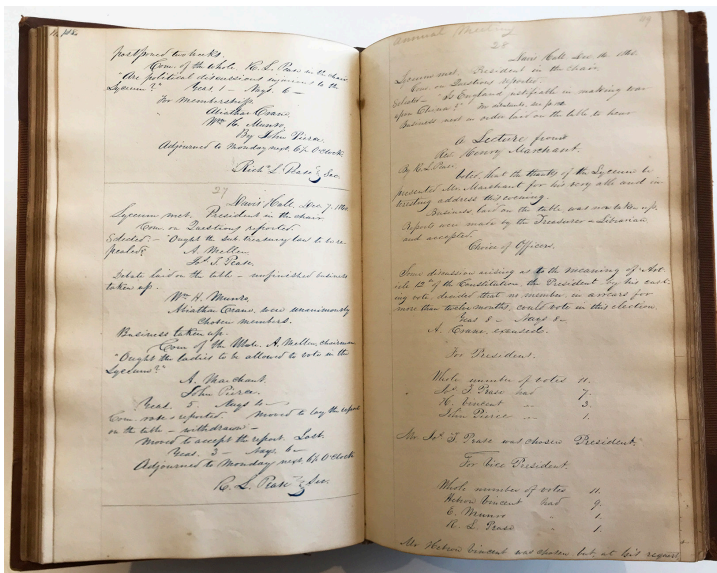 postponed two weeks.
Com. of the Whole. R. L. Pease in the chair
"Are political discussions injurious to the
Lyceum?" Yeas 1 – Nays. 6 –
For Membership
Abiathar Crane,
Wm H. Munro,
By John Pierce.
Adjourned to Monday next. 6½ O'clock
Richd L. Pease, Sec.
27
Davis' Hall, Dec. 7. 1840
Lyceum met. President in the chair
Com. on Questions reported.
Selected: – Ought the Sub-treasury law to be re-
pealed? A. Mellen,
Jos. T. Pease.
Debate laid on the table – unfinished business
taken up.
Wm H. Munro,
Abiathar Crane, were unanimously
chosen members.
Business taken up.
Com. of the Whole. A. Mellen, chairman
"Ought the ladies to be allowed to vote in the
Lyceum?"
A. Marchant.
John Pierce.
Yeas. 5 – Nays 6 –
Com. rose & reported – Moved to lay the report
on the table – withdrawn –
Moved to accept the report. Lost.
Yeas. 3 – Nays. 6 –
Adjourned to Monday next. 6½ O'clock
R. L. Pease, Sec.
Annual Meeting
29
28
Davis' Hall, Dec. 14. 1840.
Lyceum met. President in the chair
Com. on Questions reported.
Selected – "Is England justifiable in making war
upon China?"
Business next in order laid on the table to hear
A Lecture from
Rev. Henry Marchant.
By R. L. Pease
Voted, that the thanks of the Lyceum be
presented Mr. Marchant for his very able and in-
teresting address this evening.
Business, laid on the table, was now taken up.
Reports were made by the Treasurer & Librarian
and accepted.
Choice of Officers.
Some discussion arising as to the meaning of Art-
icle 12th of the Constitution, the President, by his cast-
ing vote, decided that no member, in arrears for
more than twelve months, could vote in this election.
Yeas 8 – Nays 8 –
A. Crane, excused.
For President.
Whole number of votes 11.
Jos. T. Pease had 7.
H. Vincent – 3.
John Pierce – 1.
Mr. Jos. T. Pease was chosen President.
For Vice President.
Whole number of votes 11.
Hebron Vincent had 9.
E. Munro 1.
R. L. Pease 1.
Mr. Hebron Vincent was chosen but, at his request,